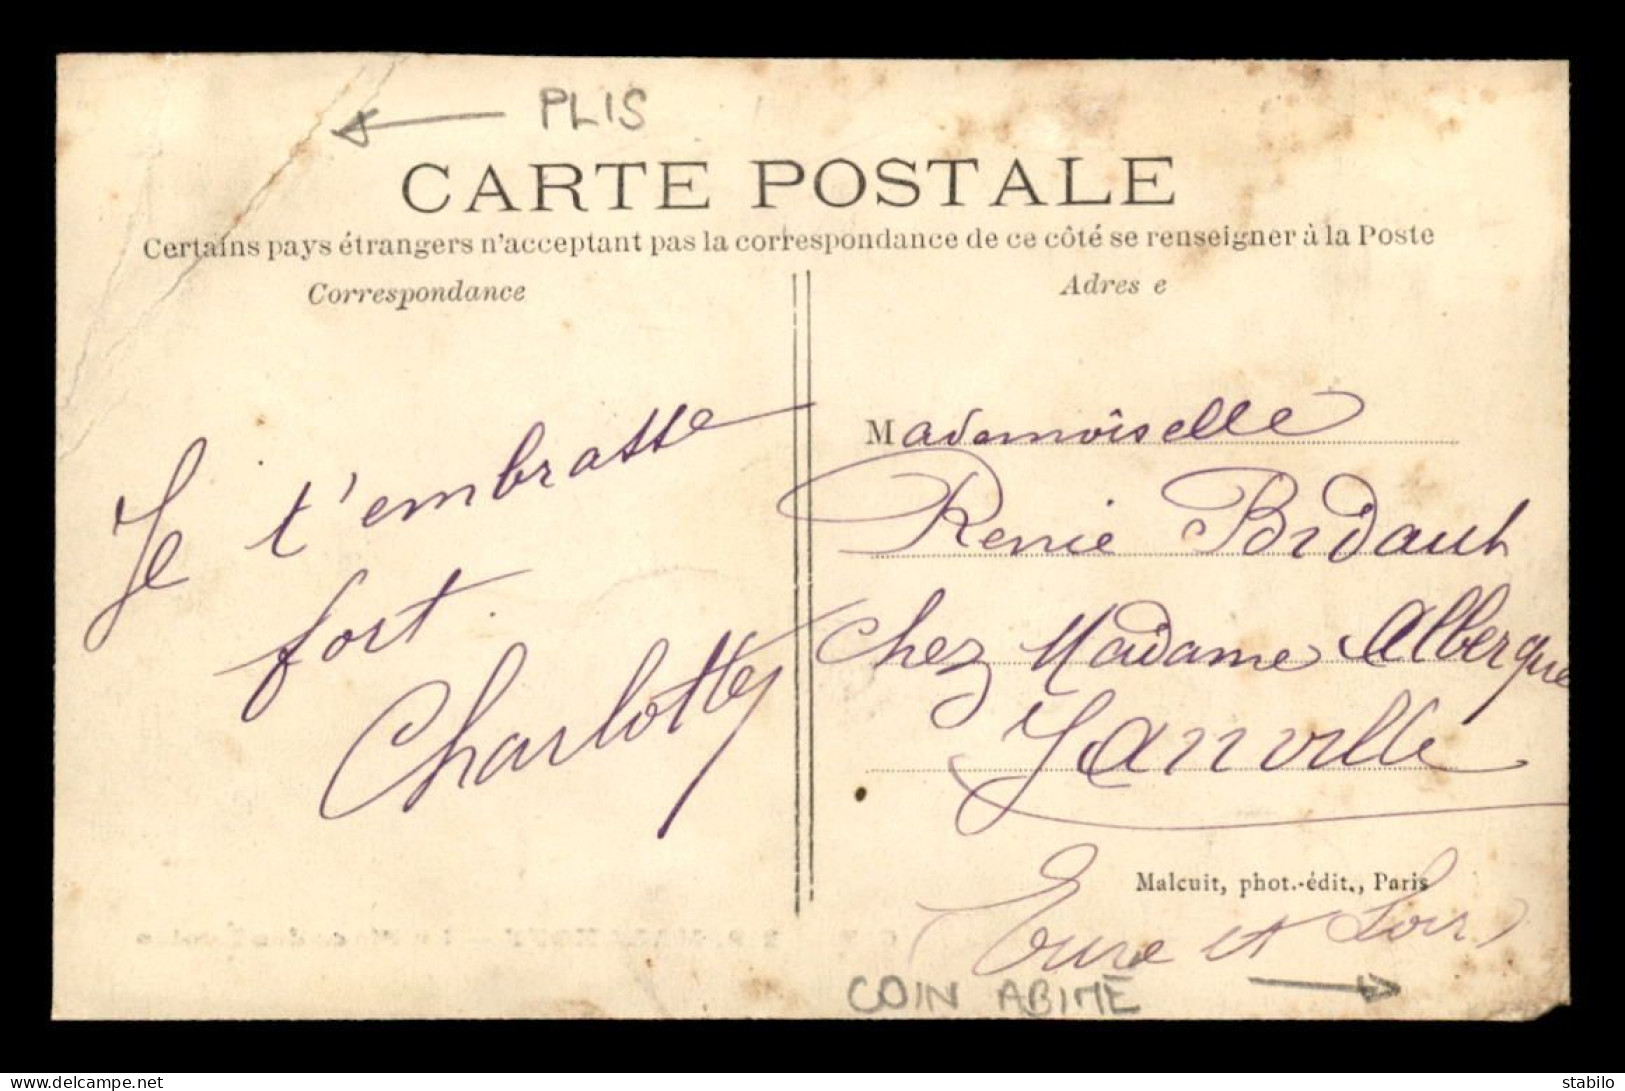 PLIS
CARTE POSTALE
Certains pays étrangers n'acceptant pas la correspondance de ce côté se renseigner à la Poste
Correspondance
Adres e
Je t'embrasse
fort.
Charlotte
Mademoiselle
Renée Bidault
chez Madame Alberque
Janville
Malcuit, phot.-édit., Paris
Eure et Loir
COIN ABIMÉ
Luxe - Delcampe.net
stabilo